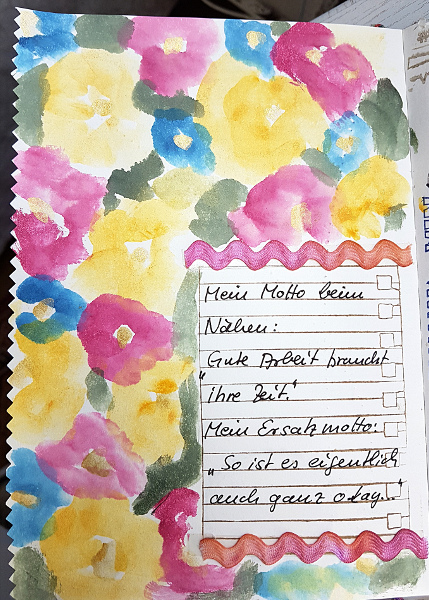 Mein Motto beim
Nähen:
„Gute Arbeit braucht
ihre Zeit."
Mein Ersatzmotto:
„So ist es eigentlich
auch ganz okay..."